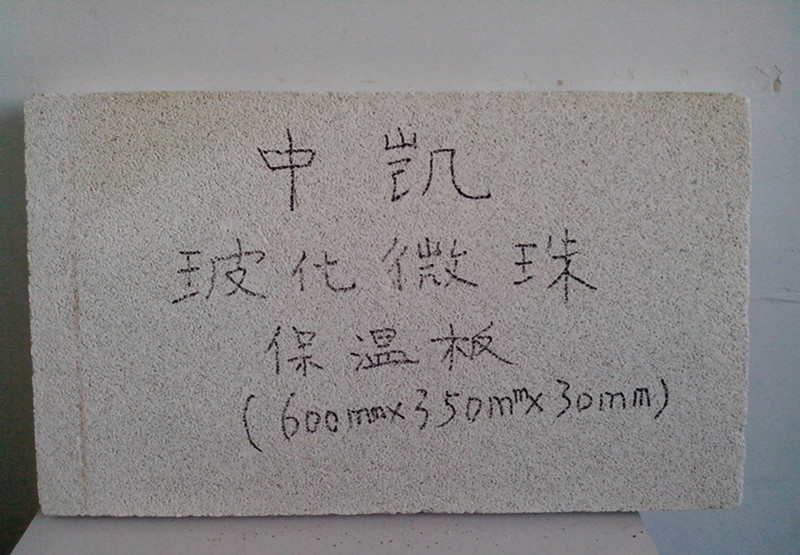 中凯
玻化微珠
保温板
(600mm×350mm×30mm)